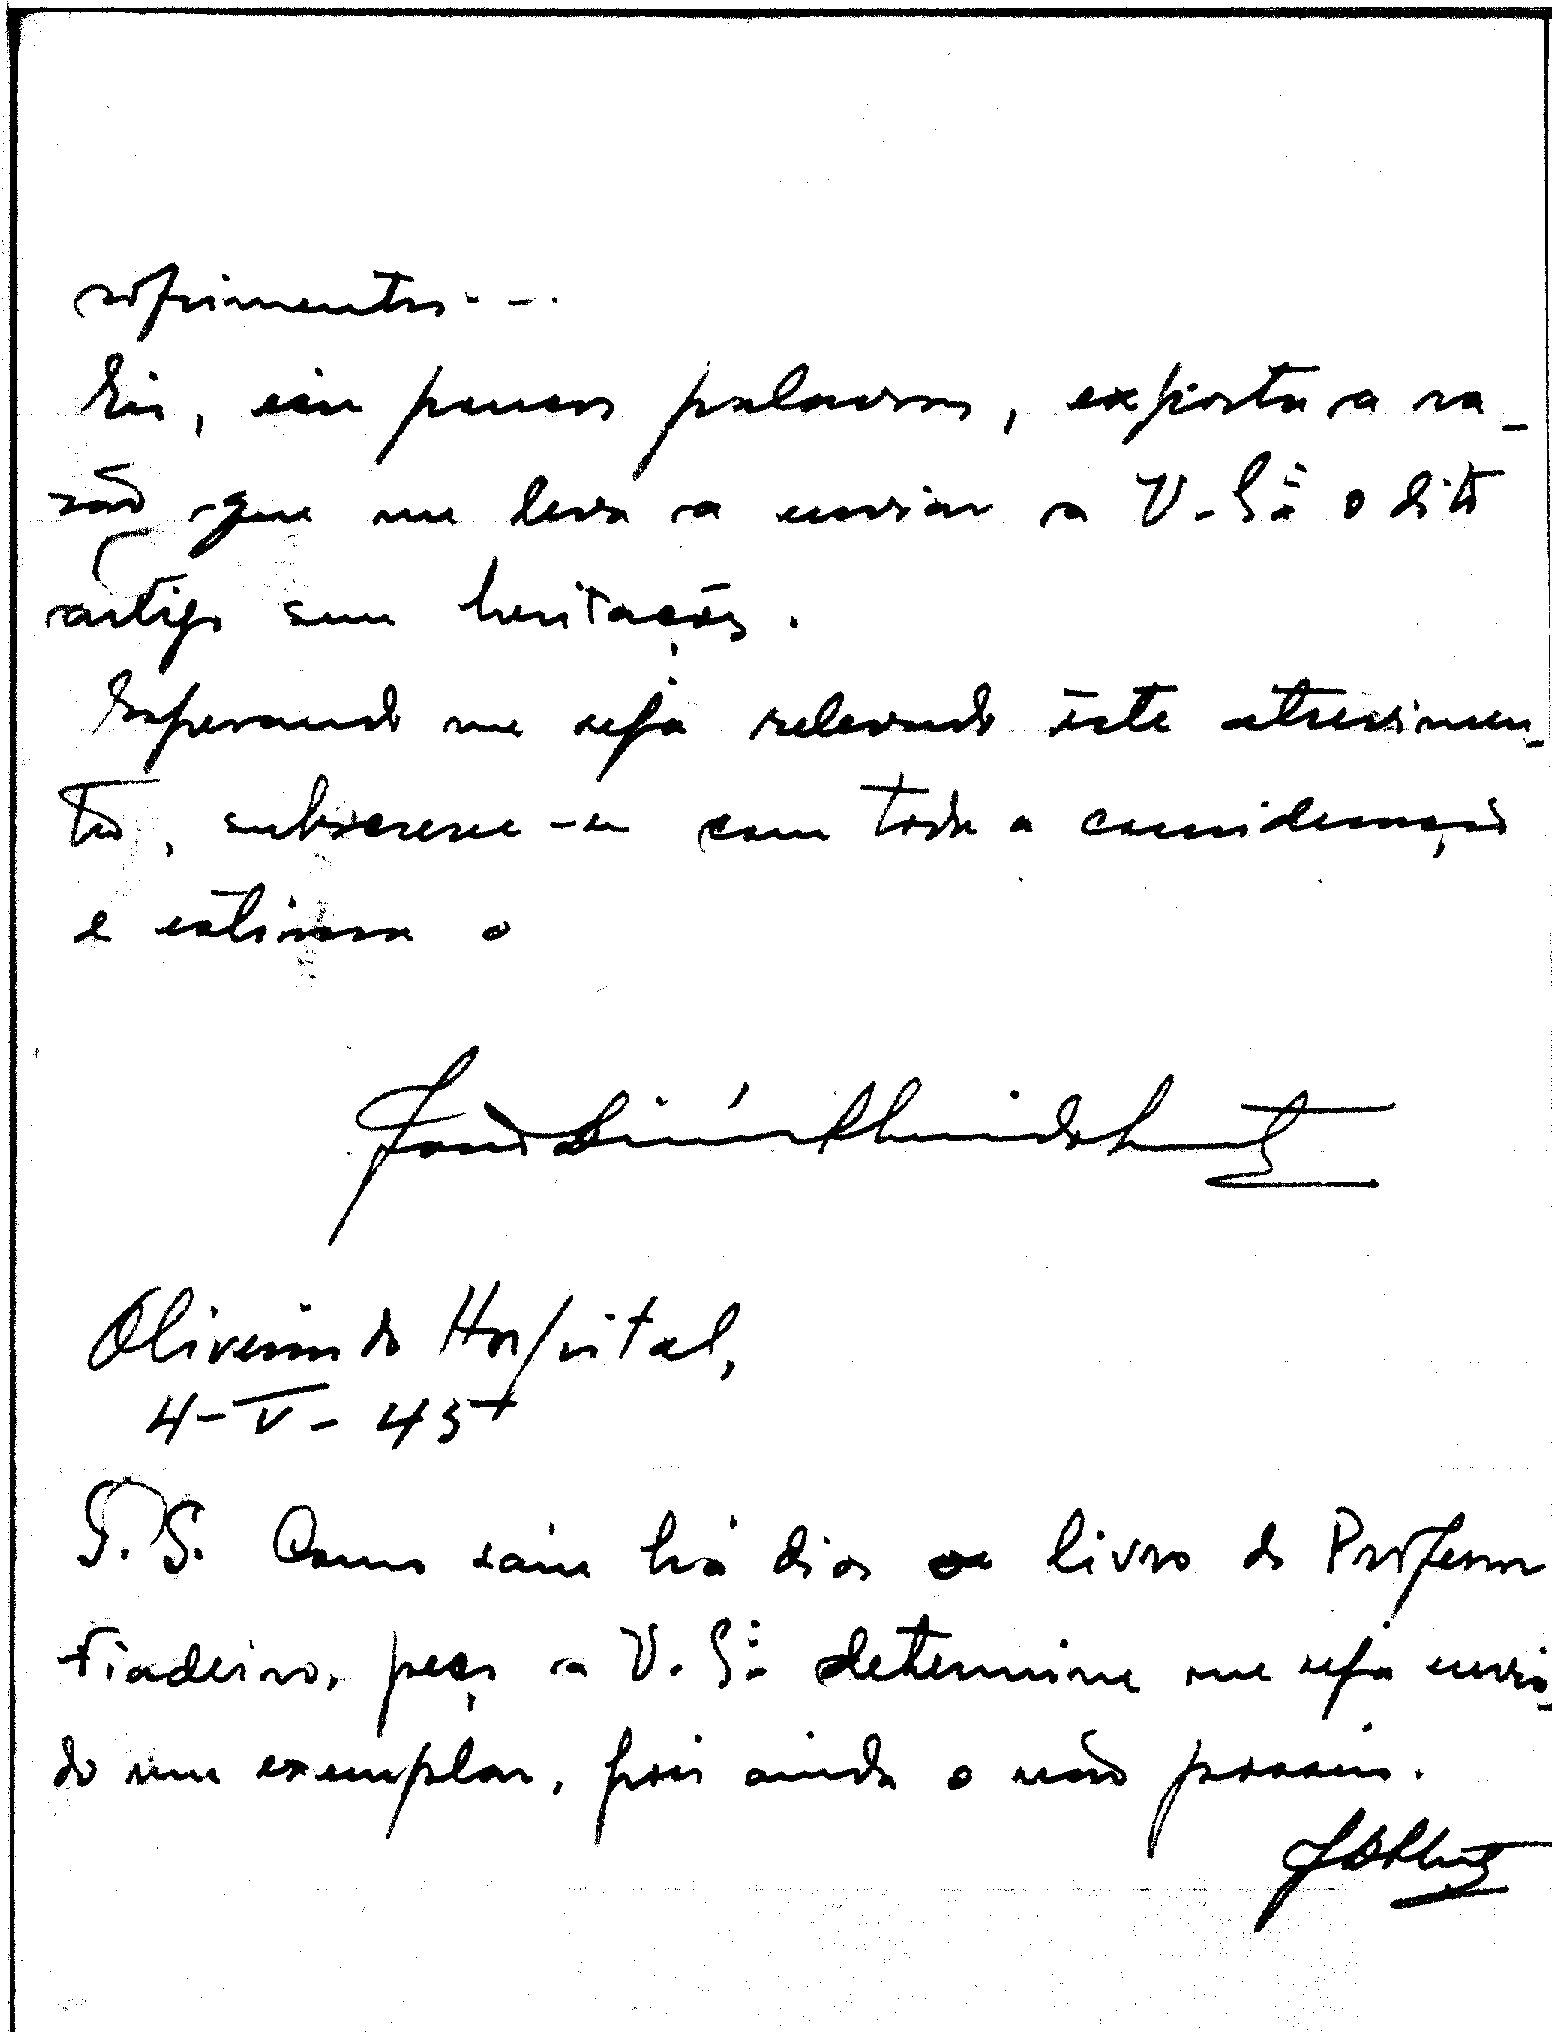 sofrimentos...
Eis, em poucas palavras, exposta a ra-
zão que me leva a enviar a V. S.ª o dito
artigo sem hesitações.
Esperando me seja relevado êste atrevimen-
to, subscreve-se com toda a consideração
e estima o
Oliveira do Hospital,
4-V-45
P.S. Como saiu há dias o livro do Professor
Fiadeiro, peço a V. S.ª determine me seja envia-
do um exemplar, pois ainda o não possuo.